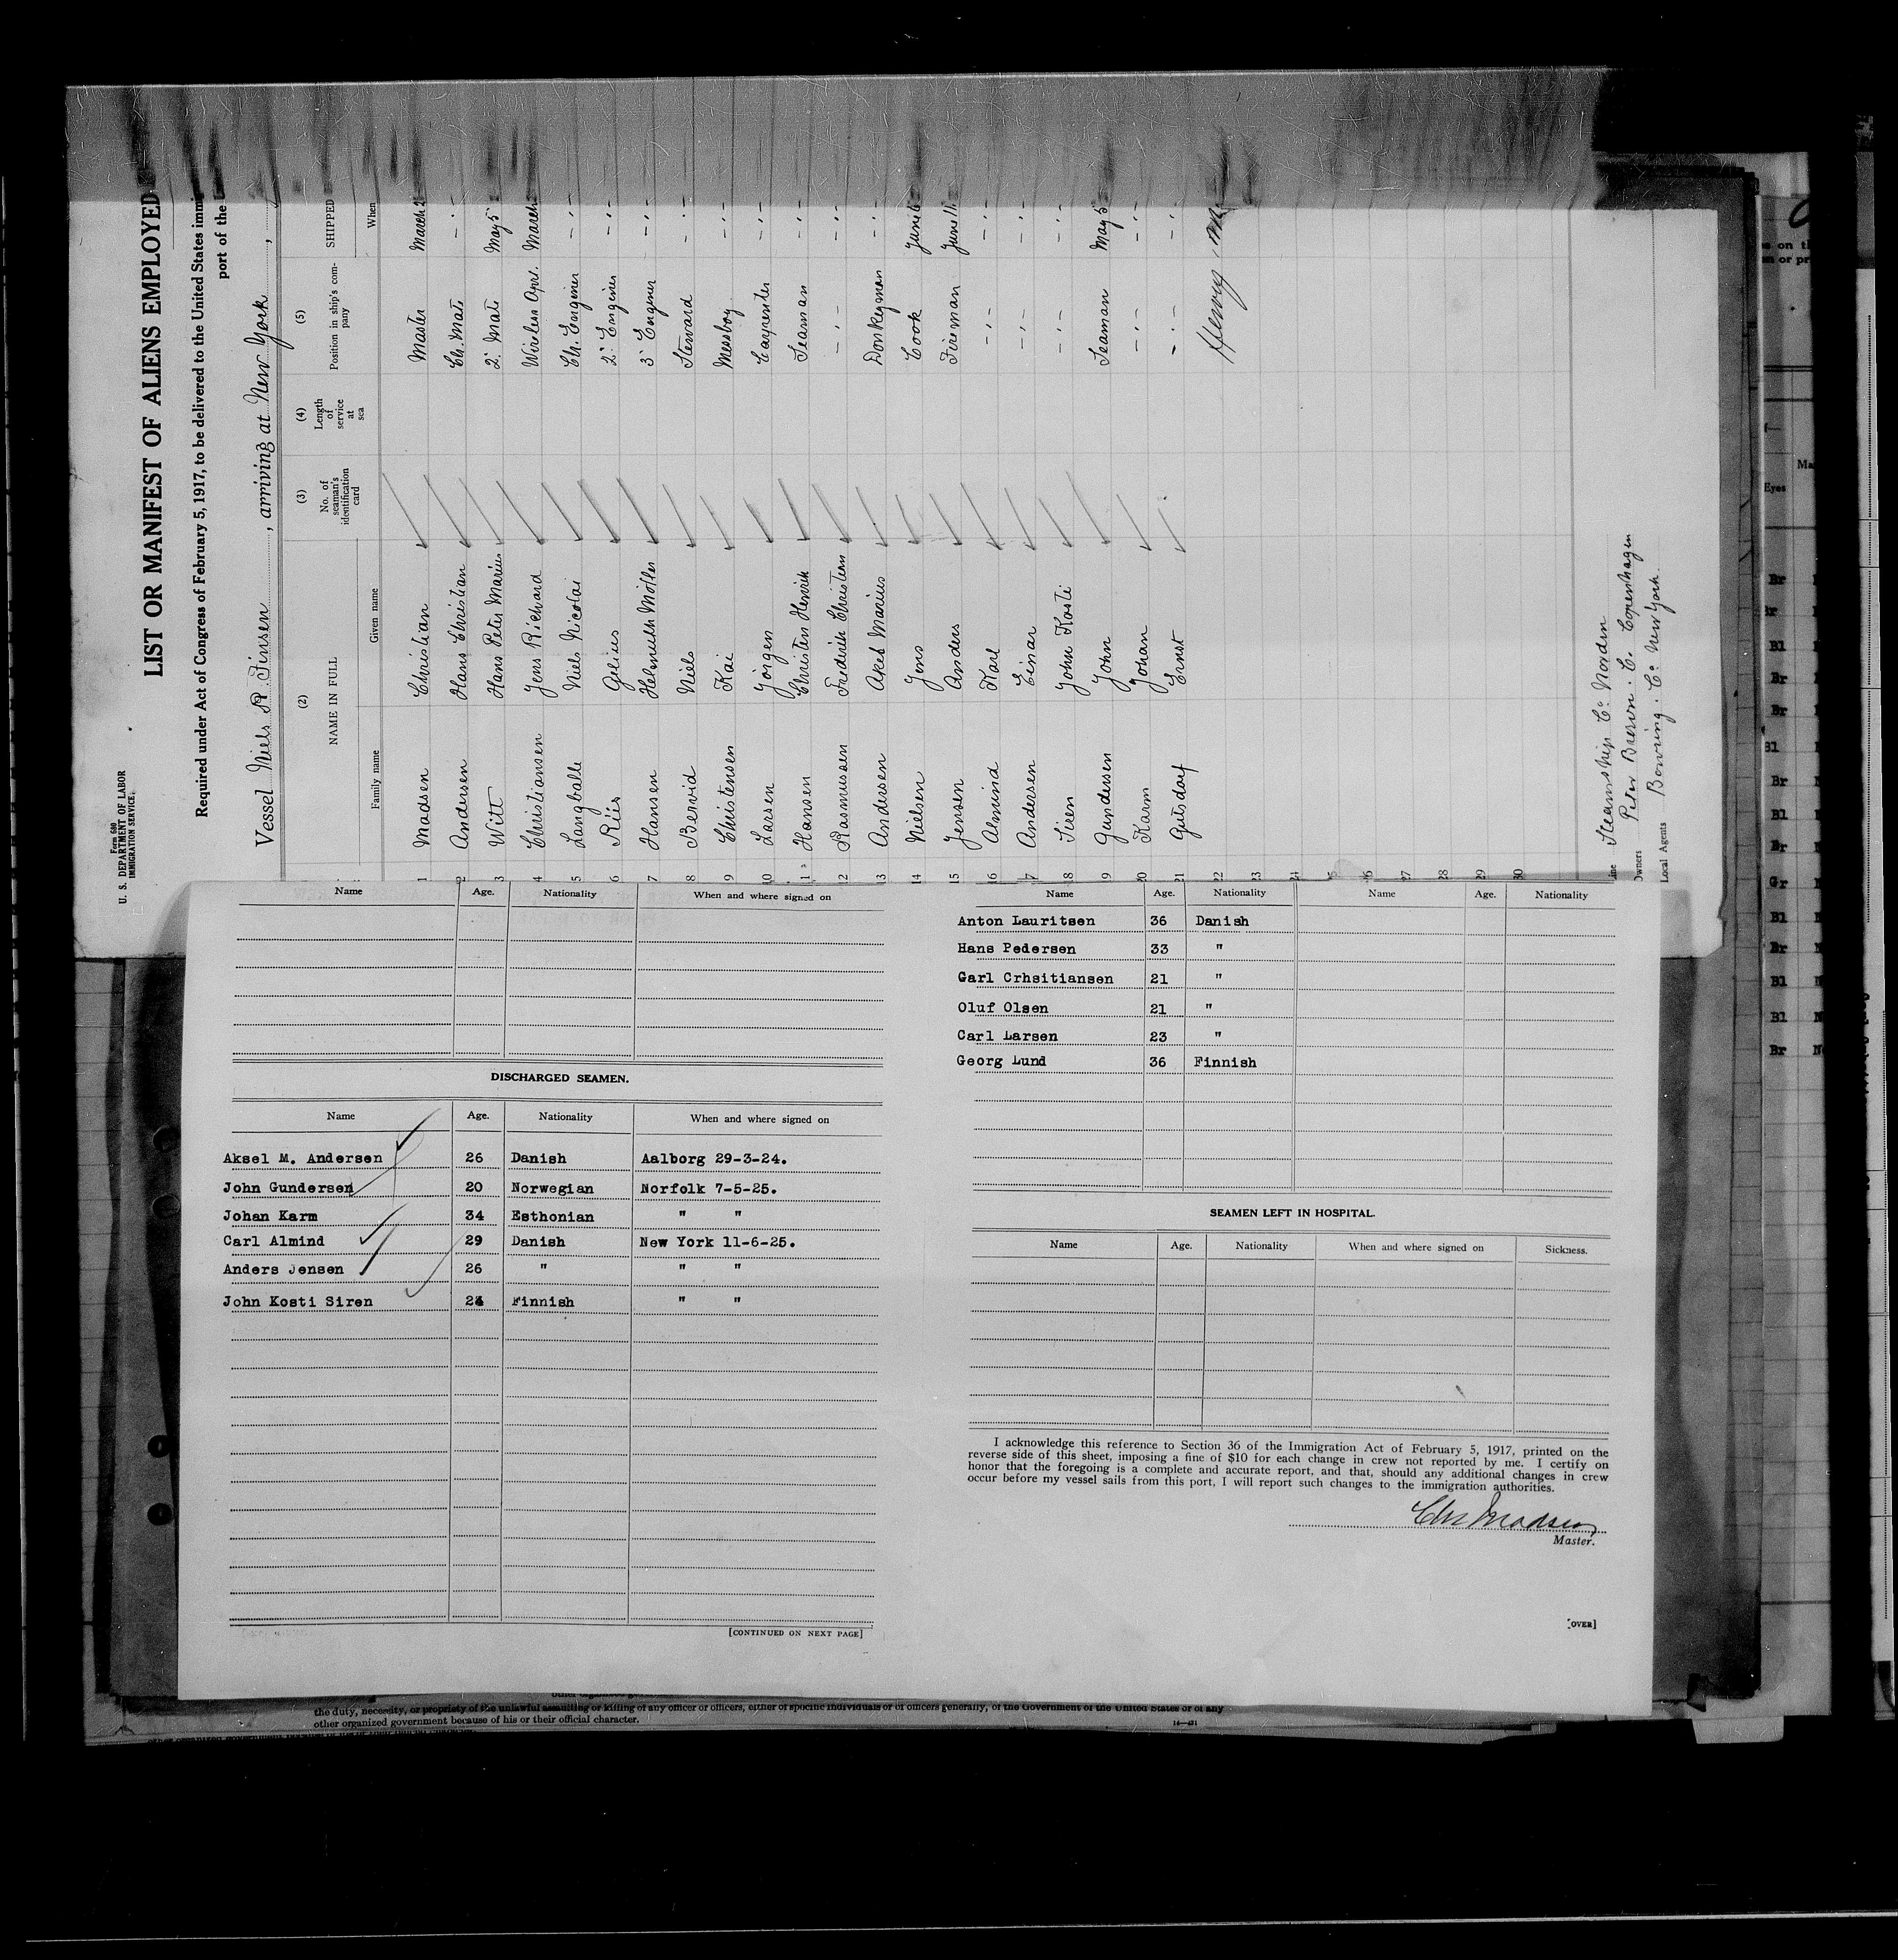 Form 680
U. S. DEPARTMENT OF LABOR
IMMIGRATION SERVICE
LIST OR MANIFEST OF ALIENS EMPLOYED
Required under Act of Congress of February 5, 1917, to be delivered to the United States immi
port of the
Vessel Niels R. Finsen, arriving at New York,
(2) (3) (4) (5)
NAME IN FULL No. of seaman's identification card Length of service at sea Position in ship's company SHIPPED
Family name Given name When
1 Madsen Christian Master March 2
2 Andersen Hans Christian Ch. Mate - " -
3 Witt Hans Peter Marius 2' Mate May 5
4 Christiansen Jens Richard Wireless Oprt. March
5 Langballe Niels Nicolai Ch. Enginer - " -
6 Riis Gelius 2' Enginer - " -
7 Hansen Helmuth Möller 3' Enginer - " -
8 Bervid Niels Steward - " -
9 Christensen Kai Messboy - " -
10 Larsen Jörgen Carpenter - " -
11 Hansen Christen Henrik Seaman - " -
12 Rasmussen Frederik Christian - " - - " -
13 Andersen Aksel Marius Donkeyman - " -
14 Nielsen Jens Cook June 6
15 Jensen Anders Fireman June 11
16 Almind Karl - " - - " -
17 Andersen Einar - " - - " -
18 Siren John Kosti - " - - " -
19 Gundersen John Seaman May 5
20 Karm Johan - " - - " -
21 Gutsdorf Ernst - " - - " -
22 Henry
23
24
25
26
27
28
29
30
Line Steamship Co. Norden
Owners Peter Brown. C. Copenhagen
Local Agents Bowring. Co. New York.
Name Age. Nationality When and where signed on
DISCHARGED SEAMEN.
Name Age. Nationality When and where signed on
Aksel M. Andersen 26 Danish Aalborg 29-3-24.
John Gundersen 20 Norwegian Norfolk 7-5-25.
Johan Karm 34 Esthonian " "
Carl Almind 29 Danish New York 11-6-25.
Anders Jensen 26 " " "
John Kosti Siren 24 Finnish " "
[CONTINUED ON NEXT PAGE]
Name Age. Nationality Name Age. Nationality
Anton Lauritsen 36 Danish
Hans Pedersen 33 "
Garl Crhsitiansen 21 "
Oluf Olsen 21 "
Carl Larsen 23 "
Georg Lund 36 Finnish
SEAMEN LEFT IN HOSPITAL.
Name Age. Nationality When and where signed on Sickness.
I acknowledge this reference to Section 36 of the Immigration Act of February 5, 1917, printed on the
reverse side of this sheet, imposing a fine of $10 for each change in crew not reported by me. I certify on
honor that the foregoing is a complete and accurate report, and that, should any additional changes in crew
occur before my vessel sails from this port, I will report such changes to the immigration authorities.
Chr Madsen
Master.
[OVER]
the duty, necessity, or propriety of the unlawful assaulting or killing of any officer or officers, either of specific individuals or of officers generally, of the Government of the United States or of any
other organized government because of his or their official character.